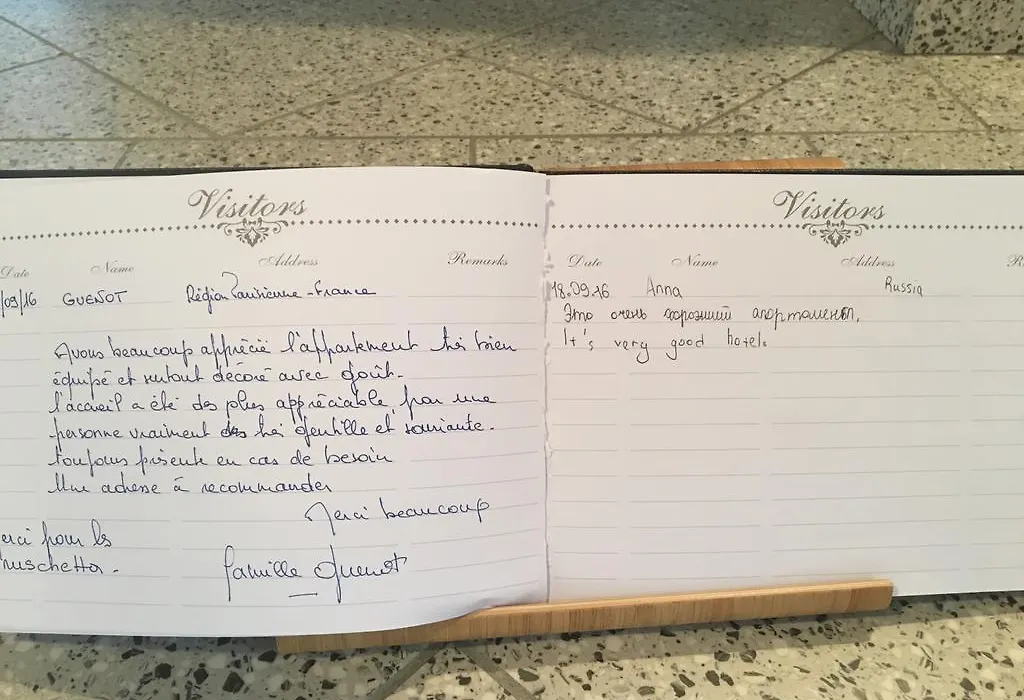 Visitors
Date Name Address Remarks
/09/16 GUENOT Région Parisienne - France
Avons beaucoup apprécié l'appartement très bien
équipé et surtout décoré avec goût.
L'accueil a été des plus appréciable par une
personne vraiment très gentille et souriante.
toujours présente en cas de besoin
Une adresse à recommander
Merci beaucoup
erci pour les
ruschetta.
famille Guenot
Visitors
Date Name Address R
18.09.16 Anna Russia
Это очень хороший апартаменты.
It's very good hotel.